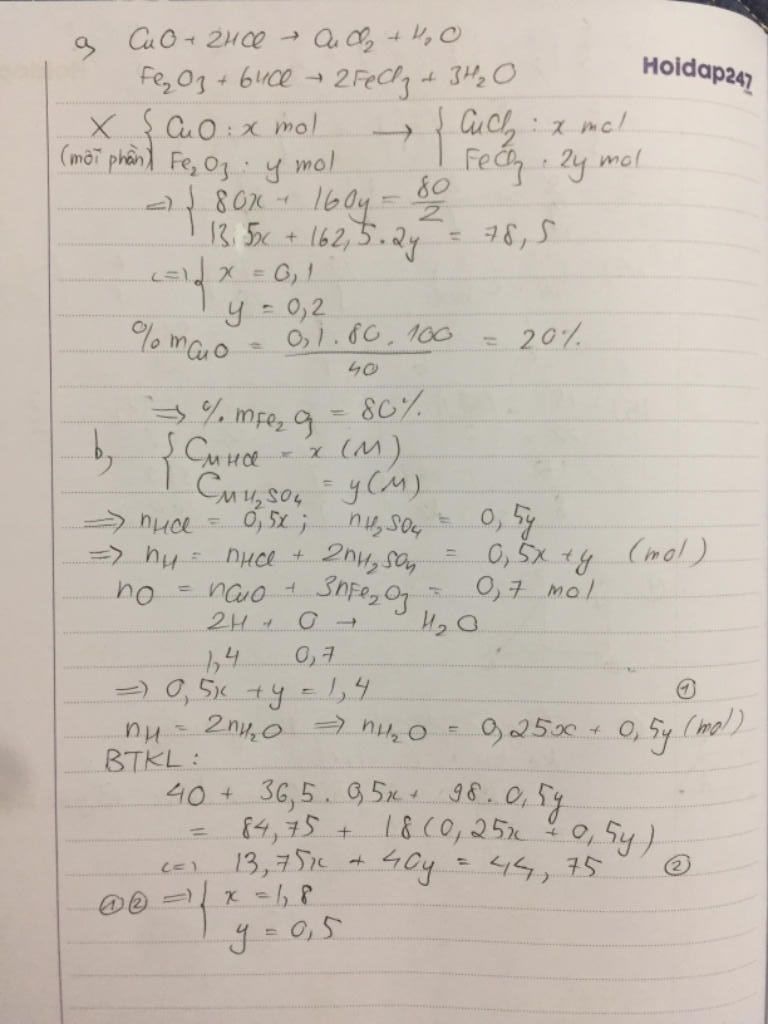 a, CuO + 2HCl → CuCl₂ + H₂O
Fe₂O₃ + 6HCl → 2FeCl₃ + 3H₂O
Hoidap247
X { CuO : x mol → { CuCl₂ : x mol
(mỗi phần) Fe₂O₃ : y mol FeCl₃ : 2y mol
=> { 80x + 160y = 80/2
135x + 162,5.2y = 78,5
<=> { x = 0,1
y = 0,2
% mCuO = 0,1.80.100/40 = 20%
=> % mFe₂O₃ = 80%
b, { CM HCl = x (M)
CM H₂SO₄ = y (M)
=> nHCl = 0,5x ; nH₂SO₄ = 0,5y
=> nH = nHCl + 2nH₂SO₄ = 0,5x + y (mol)
nO = nCuO + 3nFe₂O₃ = 0,7 mol
2H + O → H₂O
1,4 0,7
=> 0,5x + y = 1,4 ①
nH = 2nH₂O => nH₂O = 0,25x + 0,5y (mol)
BTKL :
40 + 36,5 . 0,5x + 98 . 0,5y
= 84,75 + 18(0,25x + 0,5y)
<=> 13,75x + 40y = 44,75 ②
①② => { x = 1,8
y = 0,5